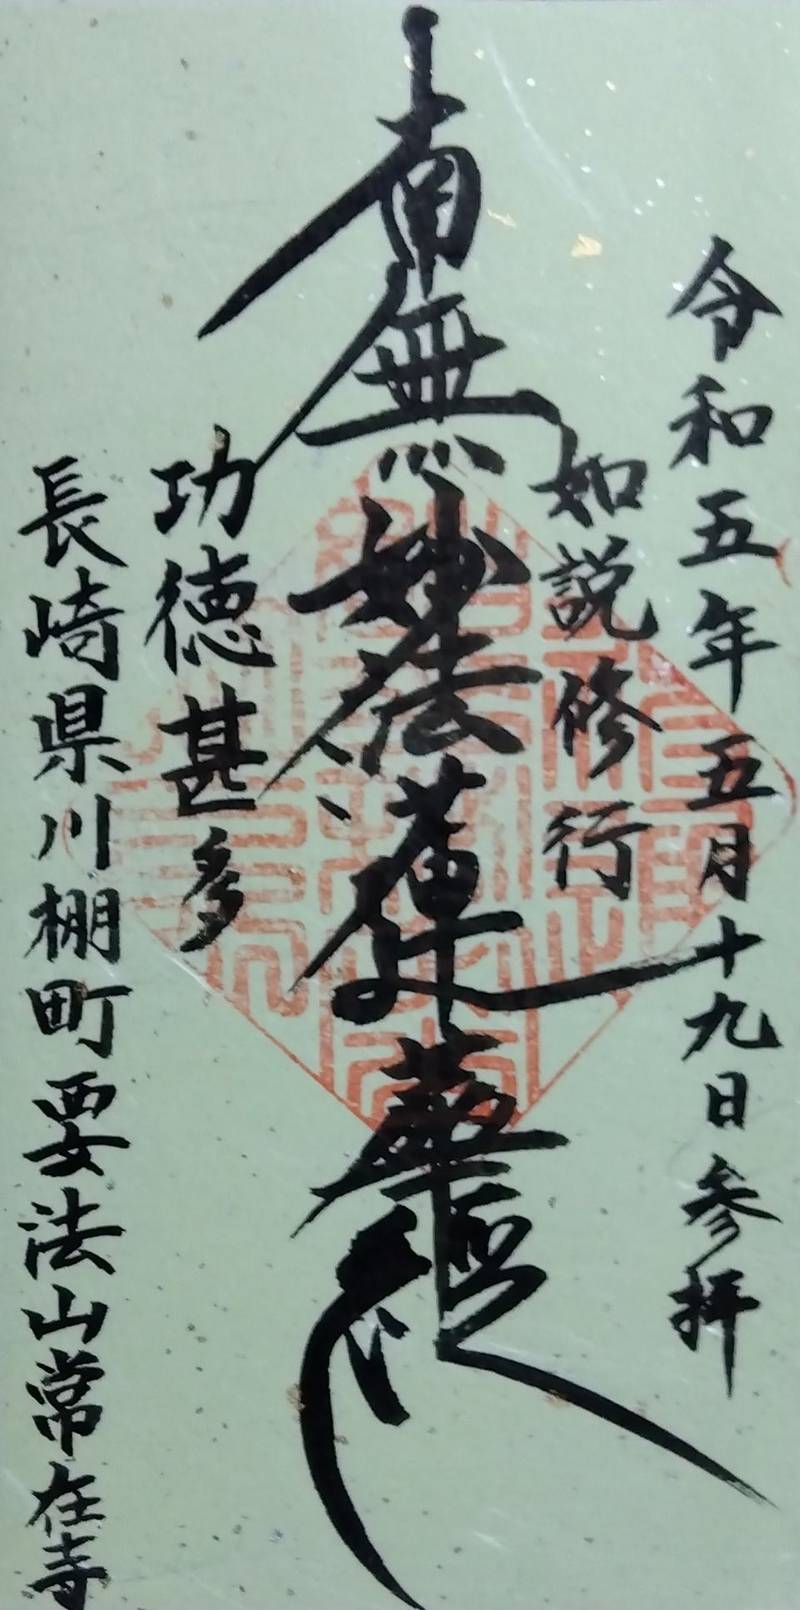 令和五年五月十九日参拝
如説修行
南無妙法蓮華経
功徳甚多
長崎県川棚町要法山常在寺